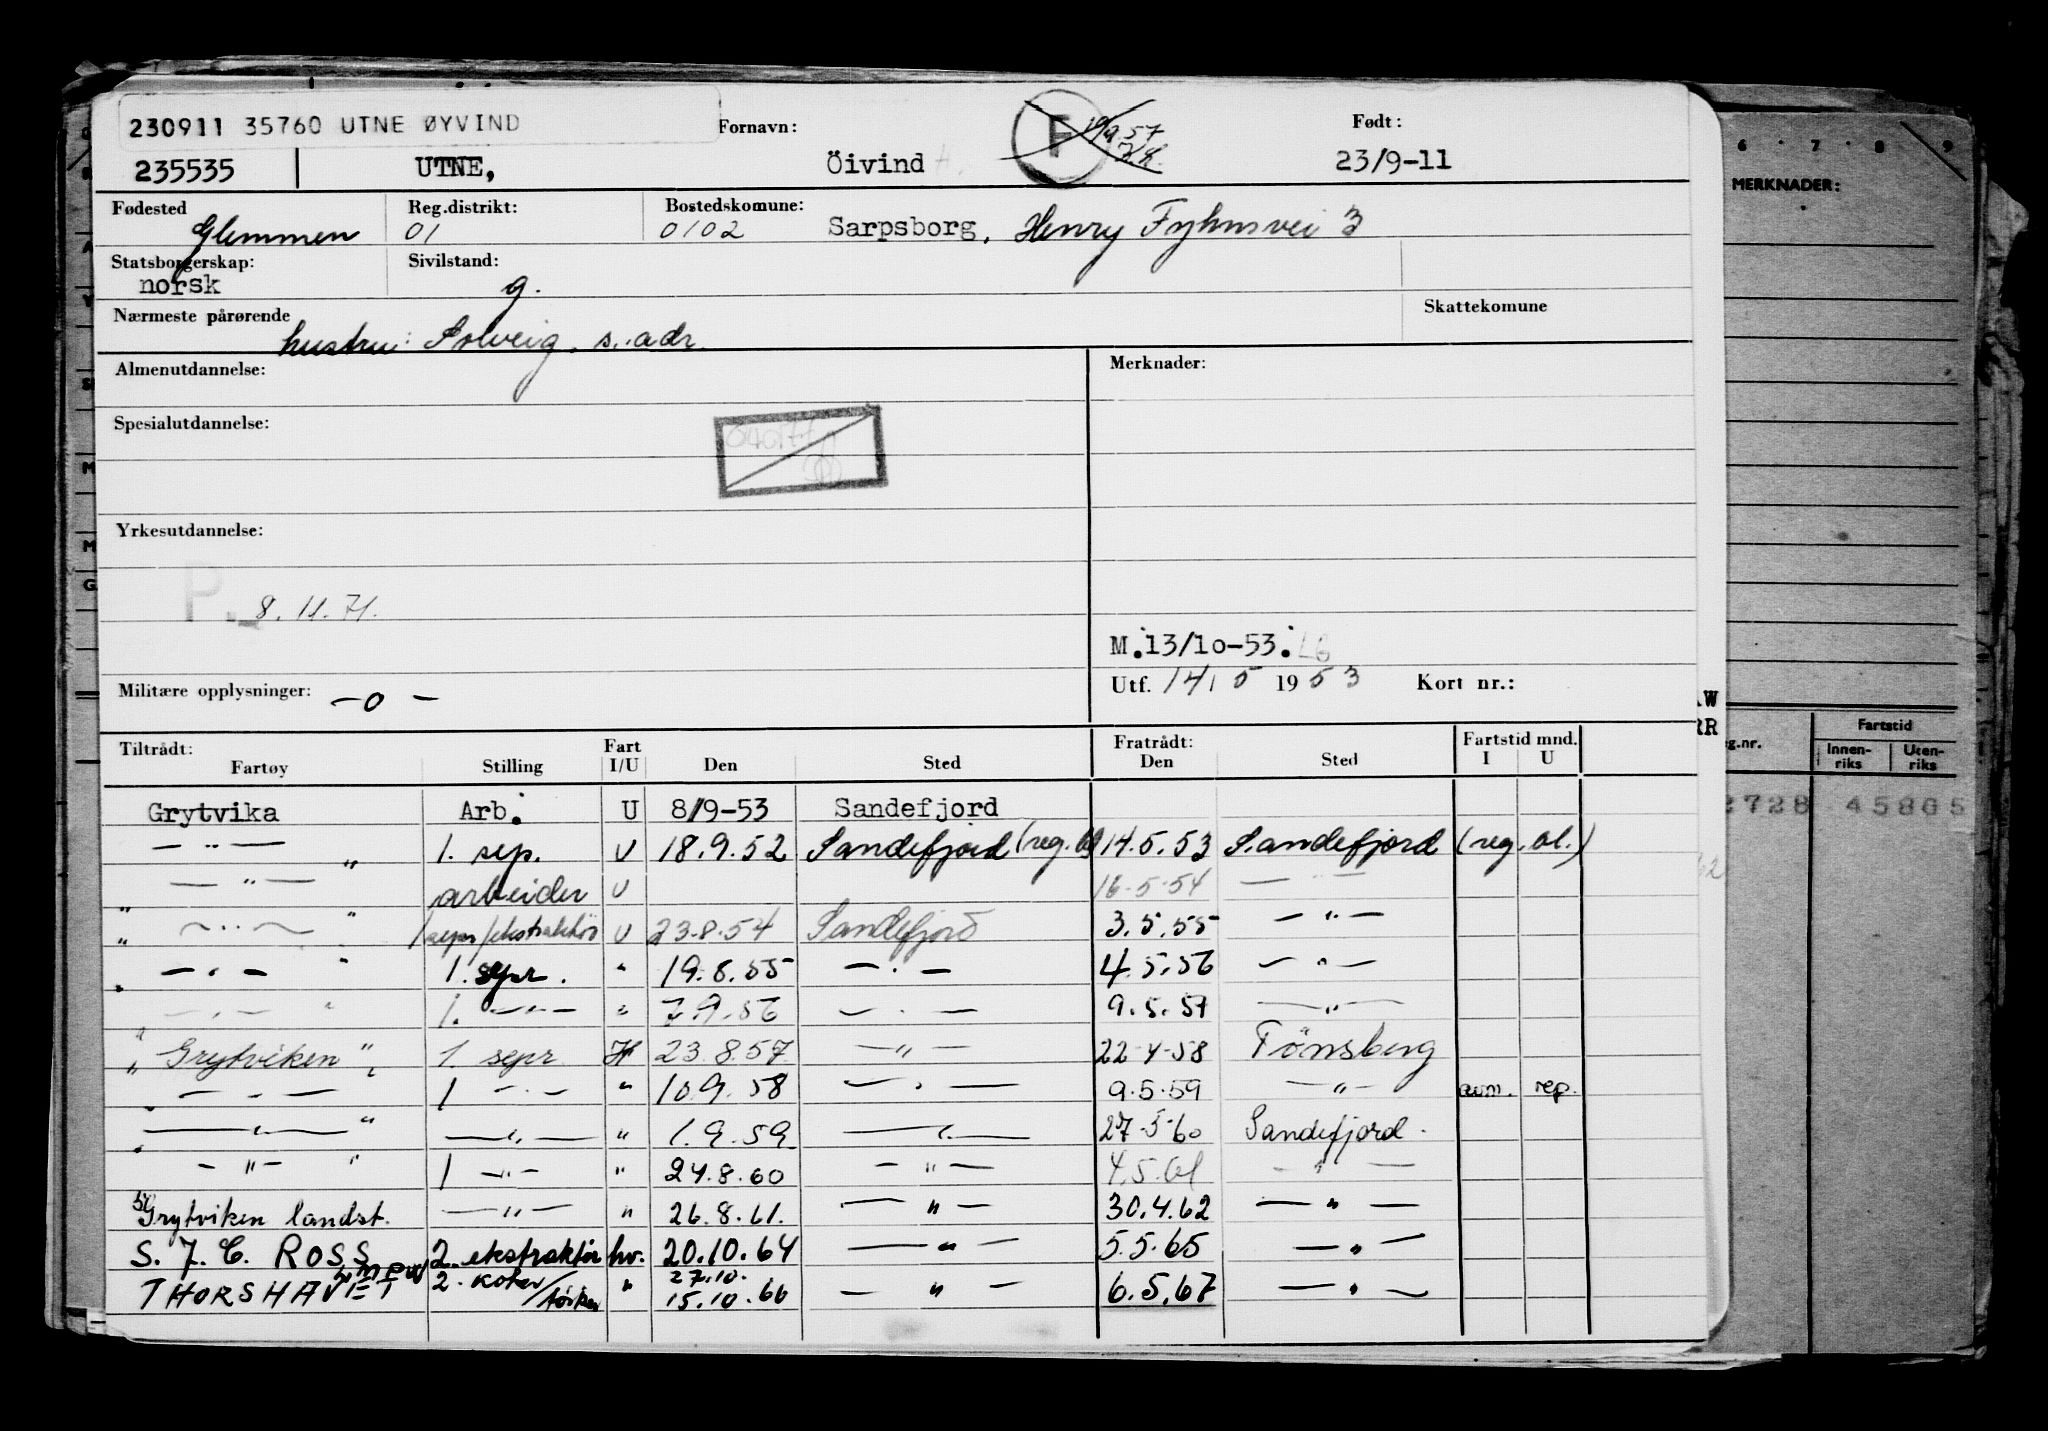 230911 35760 UTNE ØYVIND
Fornavn: Født:
235535 UTNE, Öivind F 19/9.57 23/9-11
Fødested Reg.distrikt: Bostedskomune:
Glemmen 01 0102 Sarpsborg, Henry Fyhnsvei 3
Statsborgerskap: Sivilstand:
norsk g.
Nærmeste pårørende Skattekomune
hustru: Solveig, s. adr.
Almenutdannelse: Merknader:
Spesialutdannelse:
Yrkesutdannelse:
P. 8.11.71.
M.13/10-53.
Militære opplysninger: -0- Utf. 14/5 1953 Kort nr.:
Tiltrådt: Fart Fratrådt: Fartstid mnd.
Fartøy Stilling I/U Den Sted Den Sted I U
Grytvika Arb. U 8/9-53 Sandefjord
— " — " 1. sep. U 18.9.52 Sandefjord (reg. 14.5.53 Sandefjord (reg. bl.)
— " — arbeider U 16-5-54 — " —
" — " — " 1 sepr/ekstraktör U 23.8.54 Sandefjord 3.5.55 — " —
" — " — " 1. sepr. " 19.8.55 — " — 4.5.56 — " —
— " — " 1. — " — " 7.9.56 — " — 9.5.57 — " —
" Grytviken " 1. sepr H 23.8.57 — " — 22-4-58 Tönsberg
" — " — 1 — " — " 10.9.58 — " — 9.5.59 — " — avm. rep.
" — " — " — " — " 1.9.59 — " — 27-5-60 Sandefjord.
— " — " 1 — " — " 24.8.60 — " — 4.5.61 — " —
Grytviken landst. — " — " 26.8.61. — " — 30.4.62 — " —
S. J. C. ROSS 2. ekstraktör hv. 20.10.64 — " — 5.5.65 — " —
THORSHAVET 2. koker/törker " 27.10. 15.10.66 — " — 6.5.67 — " —
6 · 7 · 8 · 9
MERKNADER:
Fartstid
g.nr. Innen-riks Uten-riks
2728 45805